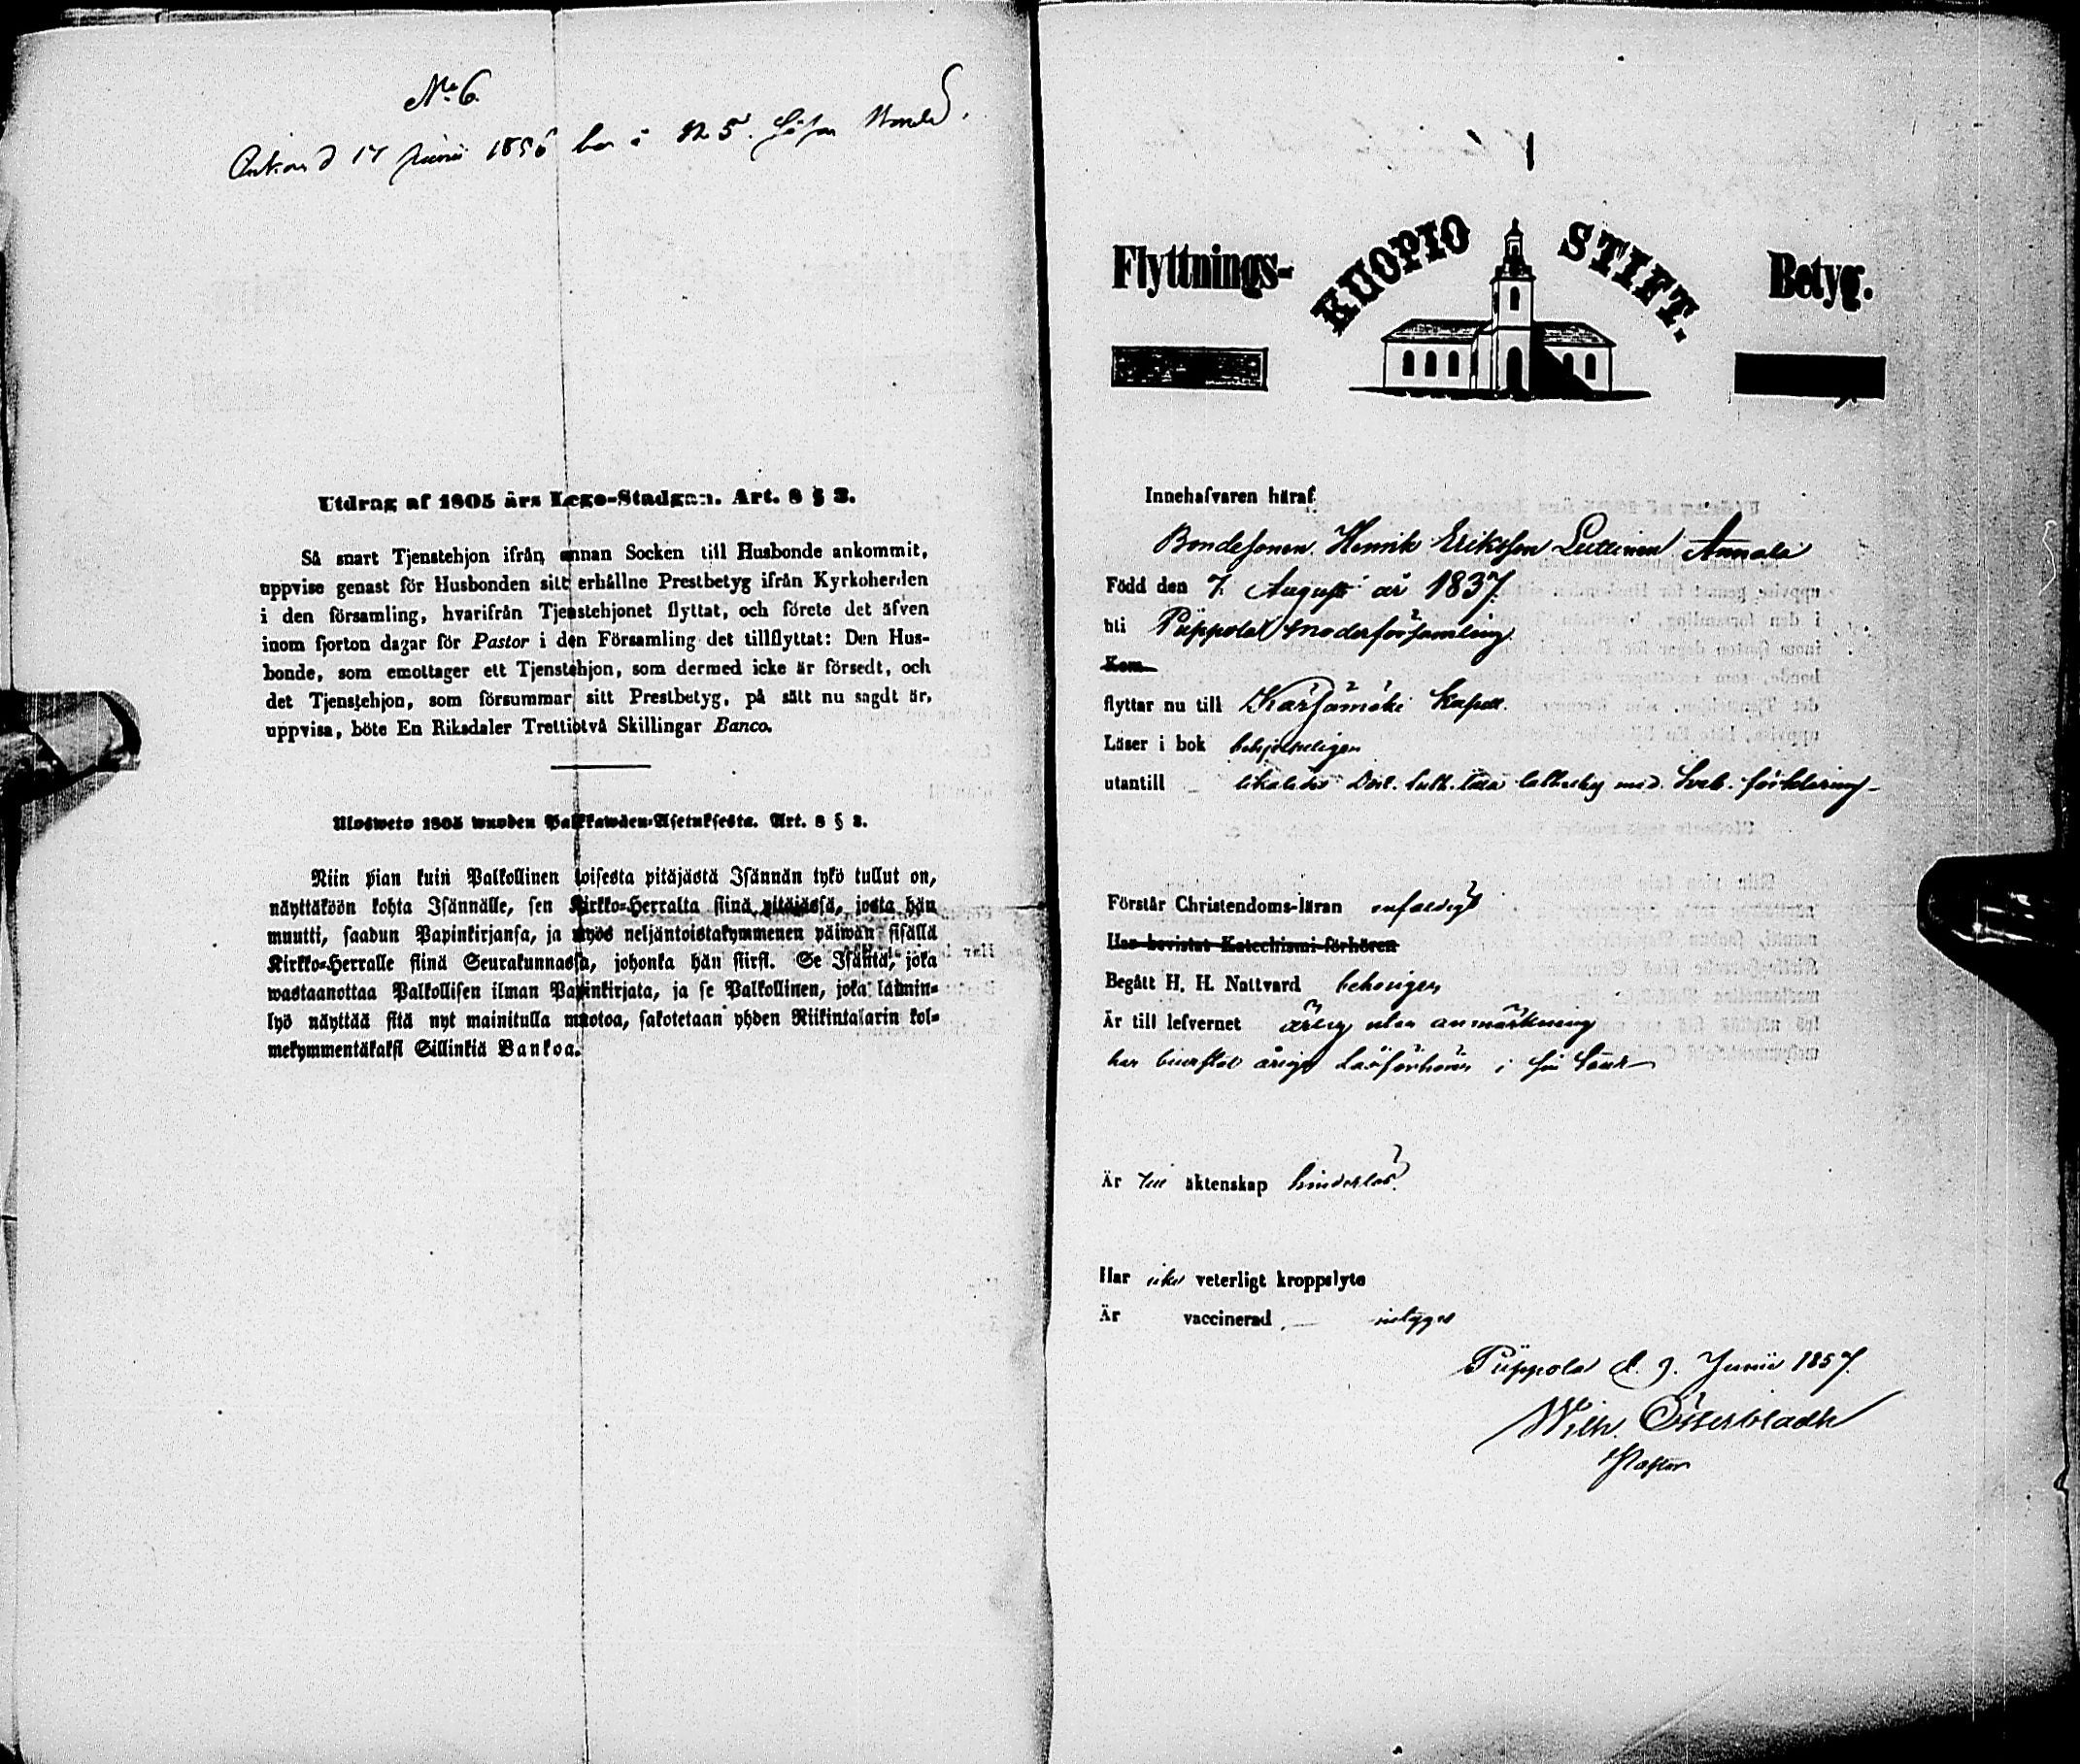 No 6.
d 17 Junii 1856 N 5.
Utdrag af 1805 års Lego-Stadgan. Art. 8 § 3.
Så snart Tjenstehjon ifrån annan Socken till Husbonde ankommit,
uppvise genast för Husbonden sitt erhållne Prestbetyg ifrån Kyrkoherden
i den församling, hvarifrån Tjenstehjonet flyttat, och förete det äfven
inom fjorton dagar för Pastor i den Församling det tillflyttat: Den Hus-
bonde, som emottager ett Tjenstehjon, som dermed icke är försedt, och
det Tjenstehjon, som försummar sitt Prestbetyg, på sätt nu sagdt är,
uppvisa, böte En Riksdaler Trettiotvå Skillingar Banco.
Ulosweto 1805 wuoden Palkkawäen-Asetuksesta. Art. 8 § 3.
Niin pian kuin Palkollinen toisesta pitäjästä Isännän tykö tullut on,
näyttäköön kohta Isännälle, sen Kirkko-Herralta siinä pitäjässä, josta hän
muutti, saadun Papinkirjansa, ja myös neljäntoistakymmenen päiwän sisällä
Kirkko-Herralle siinä Seurakunnassa, johonka hän siirsi. Se Isäntä, joka
wastaanottaa Palkollisen ilman Papinkirjata, ja se Palkollinen, joka laimin-
lyö näyttää sitä nyt mainitulla muotoa, sakotetaan yhden Riikintalarin kol-
mekymmentäkaksi Sillinkiä Bankoa.
Flyttnings- KUOPIO STIFT. Betyg.
Innehafvaren häraf
Bondesonen Henrik Eriksson Leutinen Annala
Född den 7. Augusti år 1837.
uti Piippola moderförsamling
Kom
flyttar nu till Kärsämäki Kapell.
Läser i bok behjelpeligen
utantill likaledes Doct. Luth. lilla med Sveb. förklaring
Förstår Christendoms-läran enfaldigt
Har bevistat Katechismi-förhören
Begått H. H. Nattvard behörigen
Är till lefvernet ärlig utan anmärkning
har bevistat årliga Läsförhören i sin
Är till äktenskap hinderlös
Har icke veterligt kroppslyte
Är vaccinerad intygar
Piippola d. 9. Junii 1857.
Wilh. Österbladh
Pastor